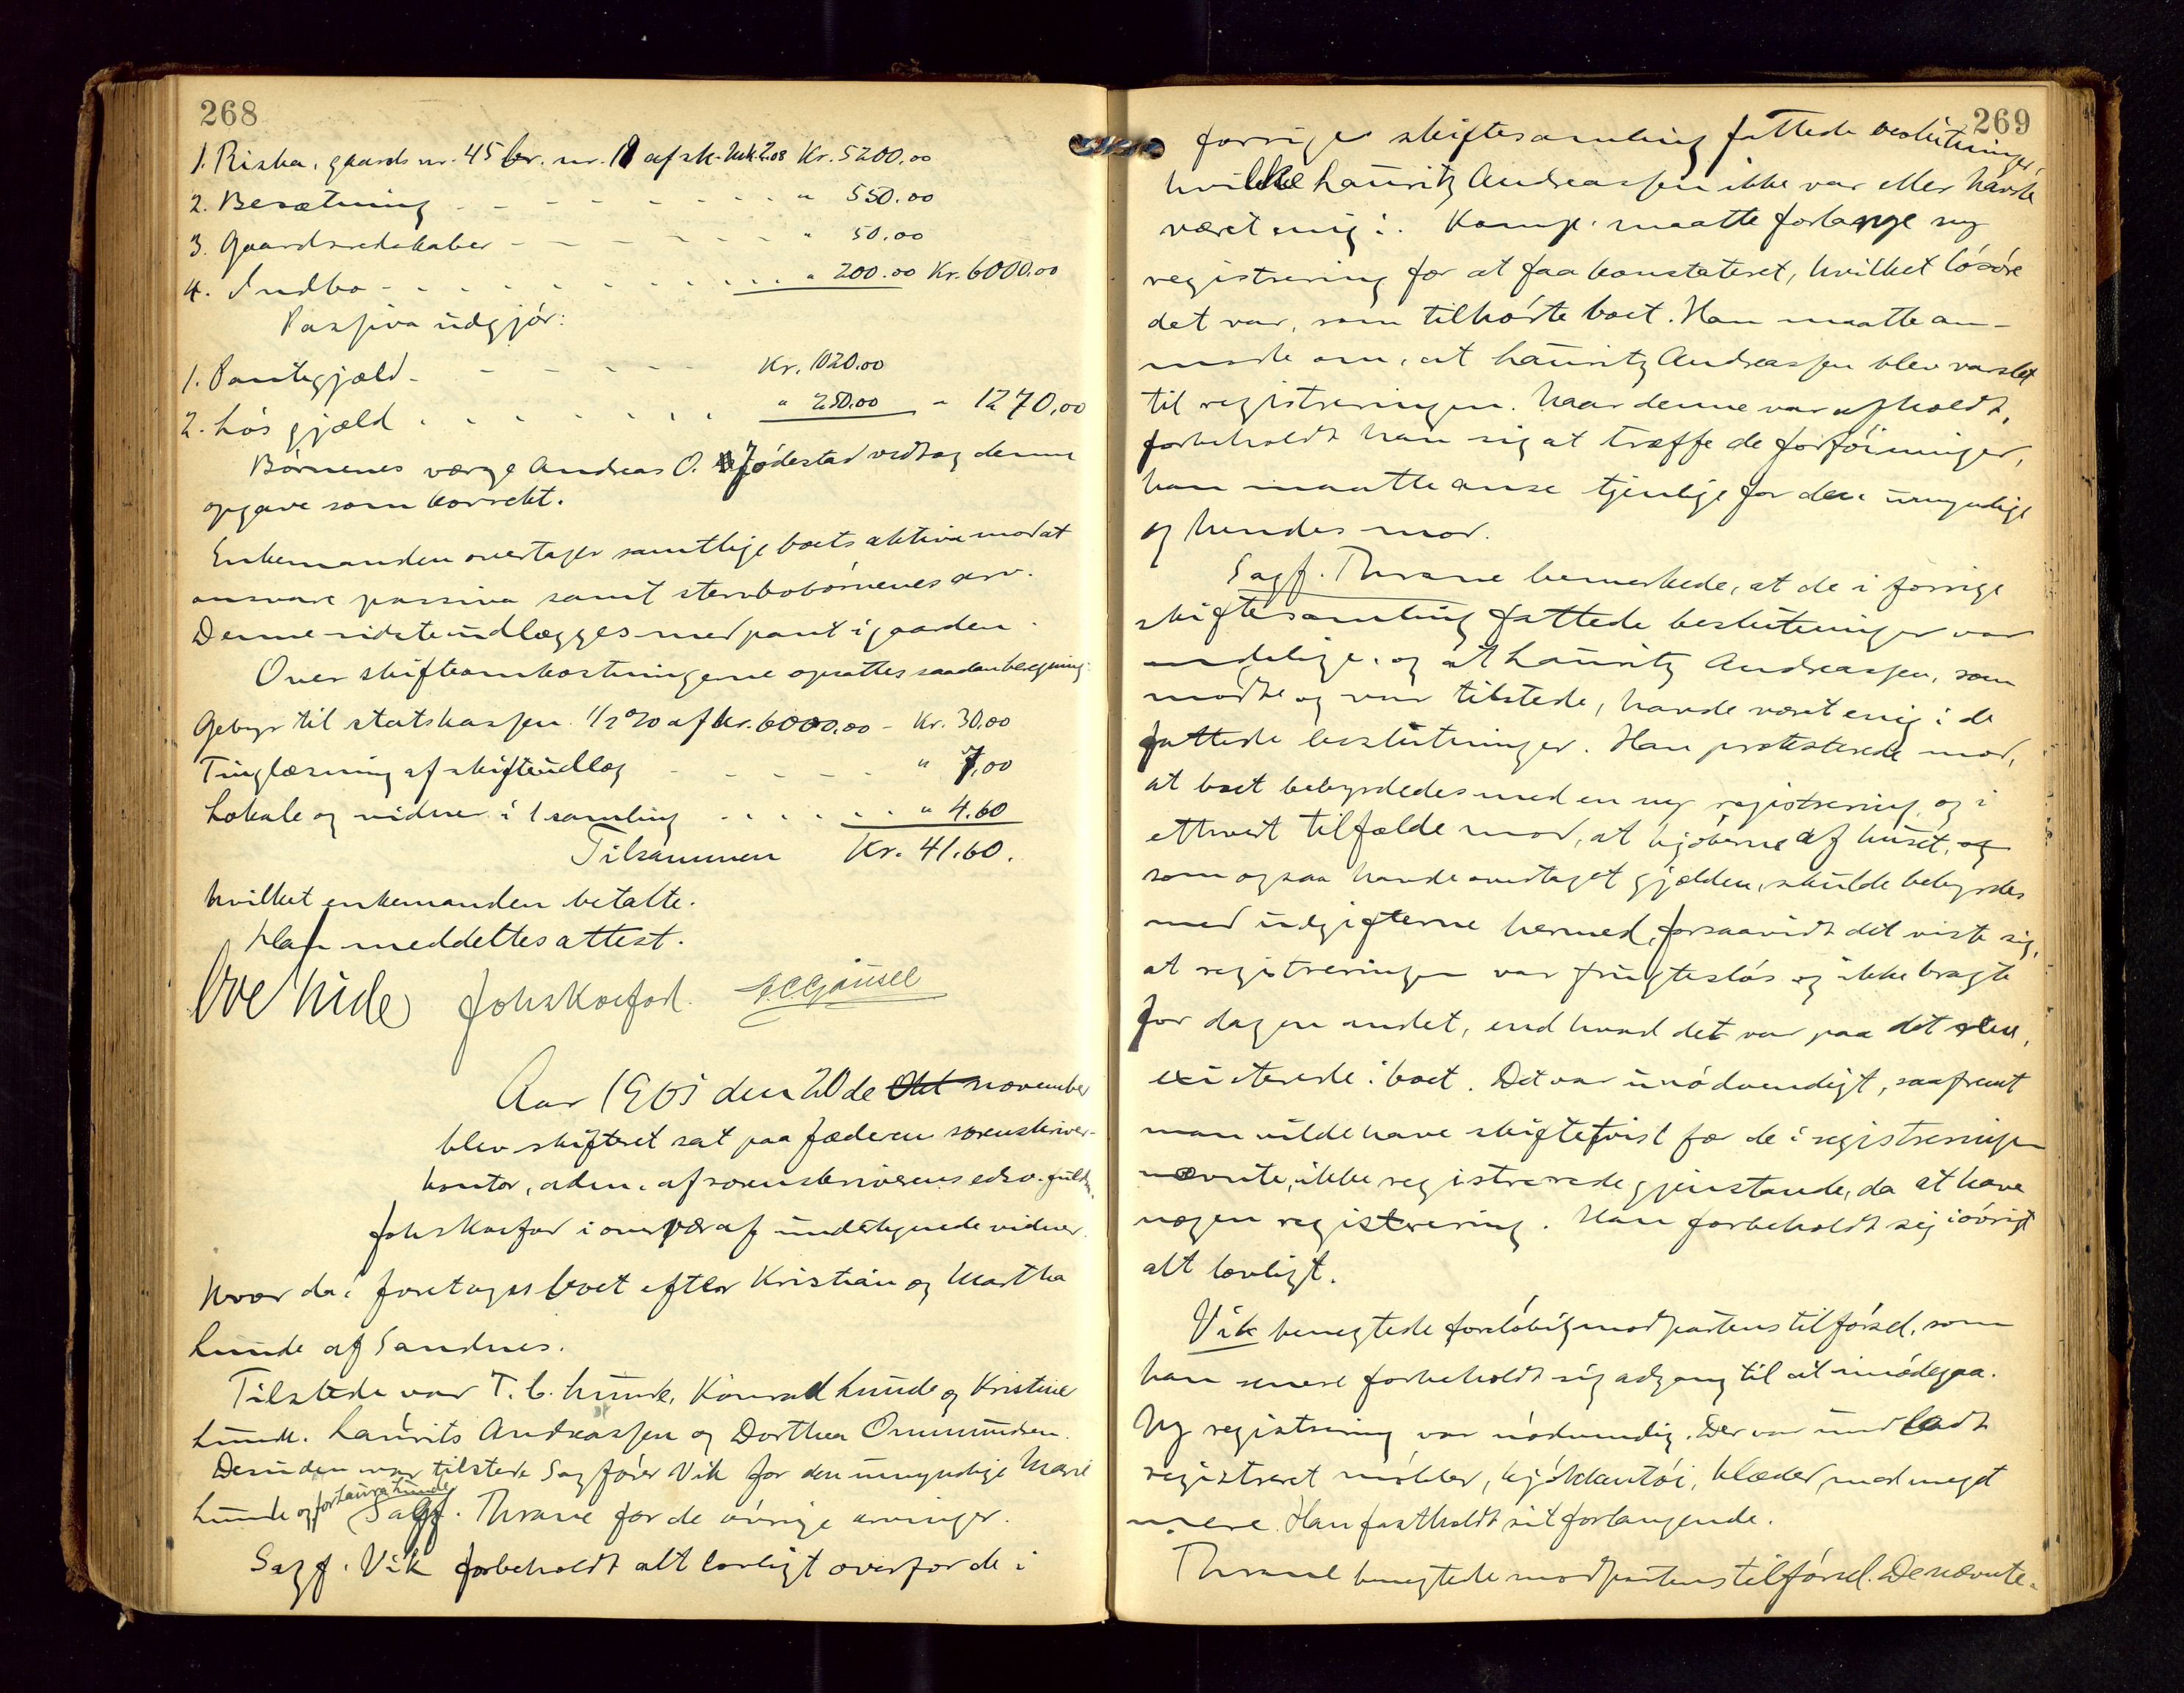 268
1. Riska, gaards nr. 45 br. nr. 11 af sk. mk. 2.08 Kr. 5200.00
2. Besætning - - - - - - - " 550.00
3. Gaardsredskaber - - - - - - " 50.00
4. Indbo - - - - - - - - " 200.00 Kr. 6000.00
Passiva udgjør:
1. Pantegjæld - - - - Kr. 1020.00
2. Løs gjæld . . . . . . . " 250.00 - " 1270,00
Børnenes værge Andreas O. Jødestad vedtog denne
opgave som korrekt.
Enkemanden overtager samtlige boets aktiva mod at
ansvare passiva samt stervbobørnenes arv.
Denne sidste udlægges med pant i gaarden.
Over skifteomkostningerne opsattes saadan beregning:
Gebyr til statskassen 1/2 % af kr. 6000.00 - Kr. 30.00
Tinglæsning af skifteudlæg - - - - - " 7,00
Lokale og vidner i 1 samling . . . . . . " 4.60
Tilsammen Kr. 41.60.
hvilket enkemanden betalte.
Han meddeltes attest.
Ove Hide Johs Korfod.
Aar 1905 den 20de Okt november
blev skifteret sat paa Jæderens sorenskriver-
kontor, adm. af sorenskriverens edsv. fuldm.
Johs Korfod i overvær af undertegnede vidner.
Hvor da: foretoges boet efter Kristian og Martha
Lunde af Sandnes.
Tilstede var T. C. Lunde, Konrad Lunde og Kristine
Lunde. Laurits Andreassen og Dorthea Ommundsen.
Desuden var tilstede Sagfører Vik for den umyndige Marie
Lunde og for Laura Lunde Sagf. Thrane for de øvrige arvinger.
Sagf. Vik forbeholdt alt lovligt overfor de i
269
forrige skiftesamling fattede beslutninger,
hvilke Lauritz Andreassen ikke var eller havde
været enig i. Komp. maatte forlange ny
registrering for at faa konstateret, hvilket løsøre
det var, som tilhørte boet. Han maatte an-
mode om, at Lauritz Andreassen blev varslet
til registreringen. Naar denne var afholdt,
forbeholdt han sig at træffe de forføininger,
han maatte anse tjenlige for den umyndige
og hendes mor.
Sagf. Thrane bemerkede, at de i forrige
skiftesamling fattede beslutninger var
endelige, og at Lauritz Andreassen, som
mødte og var tilstede, havde været enig i de
fattede beslutninger. Han protesterede mod,
at boet bebyrdedes med en ny registrering og i
ethvert tilfælde mod, at kjøberne af huset, og
som ogsaa havde overtaget gjælden, skulde bebyrdes
med udgifterne hermed, forsaavidt det viste sig,
at registreringen var frugtesløs og ikke bragte
for dagen andet, end hvad det var paa det rene,
existerede i boet. Det var unødvendigt, saafremt
man vilde have skiftetvist for de i registreringen
nævnte, ikke registrerede gjenstande, da at have
nogen registrering. Han forbeholdt sig iøvrigt
alt lovligt.
Vik benegtede foreløbig modpartens tilførsel, som
han senere forbeholdt sig adgang til at imødegaa.
Ny registrering var nødvendig. Der var undladt
registreret møbler, kjøkkentøi, klæder, med meget
mere. Han fastholdt sit forlangende.
Thrane benegtede modpartens tilførsel. De nævnte